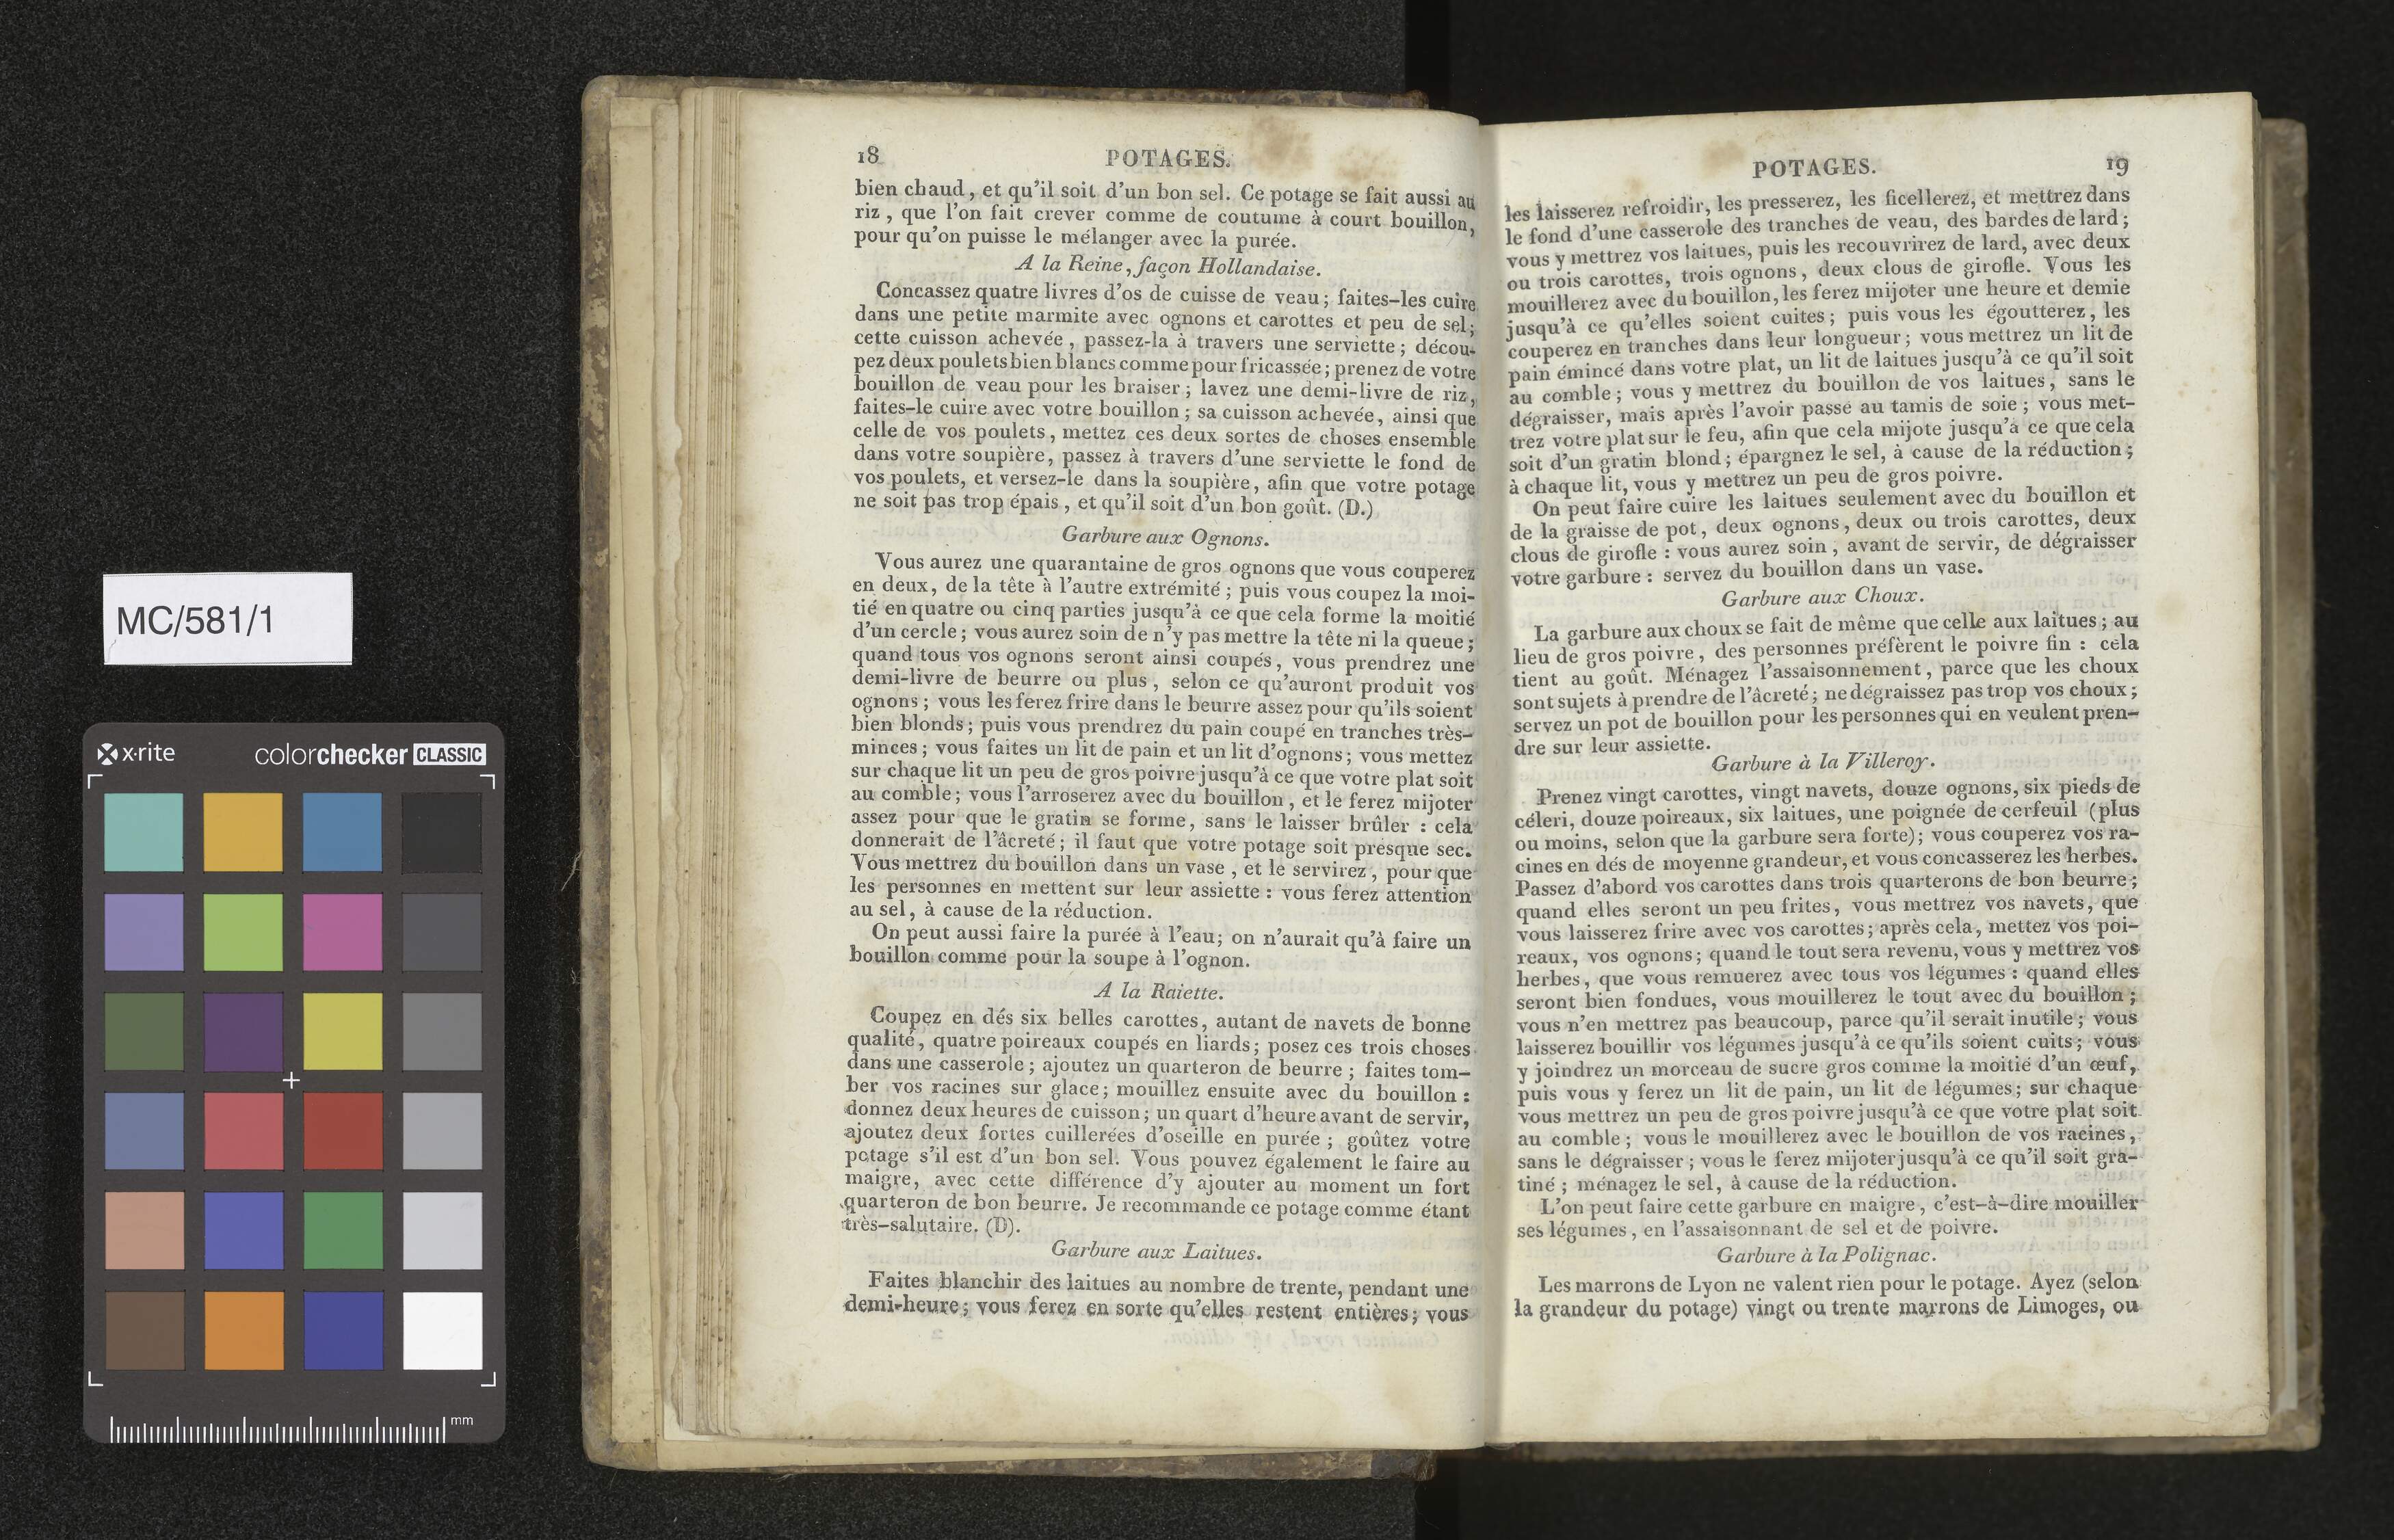 MC/581/1
x·rite
colorchecker CLASSIC
mm
18
POTAGES.
bien chaud, et qu'il soit d'un bon sel. Ce potage se fait aussi au
riz, que l'on fait crever comme de coutume à court bouillon,
pour qu'on puisse le mélanger avec la purée.
A la Reine, façon Hollandaise.
Concassez quatre livres d'os de cuisse de veau; faites-les cuire
dans une petite marmite avec ognons et carottes et peu de sel;
cette cuisson achevée, passez-la à travers une serviette; décou-
pez deux poulets bien blancs comme pour fricassée; prenez de votre
bouillon de veau pour les braiser; lavez une demi-livre de riz,
faites-le cuire avec votre bouillon; sa cuisson achevée, ainsi que
celle de vos poulets, mettez ces deux sortes de choses ensemble
dans votre soupière, passez à travers d'une serviette le fond de
vos poulets, et versez-le dans la soupière, afin que votre potage
ne soit pas trop épais, et qu'il soit d'un bon goût. (D.)
Garbure aux Ognons.
Vous aurez une quarantaine de gros ognons que vous couperez
en deux, de la tête à l'autre extrémité; puis vous coupez la moi-
tié en quatre ou cinq parties jusqu'à ce que cela forme la moitié
d'un cercle; vous aurez soin de n'y pas mettre la tête ni la queue;
quand tous vos ognons seront ainsi coupés, vous prendrez une
demi-livre de beurre ou plus, selon ce qu'auront produit vos
ognons; vous les ferez frire dans le beurre assez pour qu'ils soient
bien blonds; puis vous prendrez du pain coupé en tranches très-
minces; vous faites un lit de pain et un lit d'ognons; vous mettez
sur chaque lit un peu de gros poivre jusqu'à ce que votre plat soit
au comble; vous l'arroserez avec du bouillon, et le ferez mijoter
assez pour que le gratin se forme, sans le laisser brûler : cela
donnerait de l'âcreté; il faut que votre potage soit presque sec.
Vous mettrez du bouillon dans un vase, et le servirez, pour que
les personnes en mettent sur leur assiette : vous ferez attention
au sel, à cause de la réduction.
On peut aussi faire la purée à l'eau; on n'aurait qu'à faire un
bouillon comme pour la soupe à l'ognon.
A la Raiette.
Coupez en dés six belles carottes, autant de navets de bonne
qualité, quatre poireaux coupés en liards; posez ces trois choses
dans une casserole; ajoutez un quarteron de beurre; faites tom-
ber vos racines sur glace; mouillez ensuite avec du bouillon :
donnez deux heures de cuisson; un quart d'heure avant de servir,
ajoutez deux fortes cuillerées d'oseille en purée; goûtez votre
potage s'il est d'un bon sel. Vous pouvez également le faire au
maigre, avec cette différence d'y ajouter au moment un fort
quarteron de bon beurre. Je recommande ce potage comme étant
très-salutaire. (D).
Garbure aux Laitues.
Faites blanchir des laitues au nombre de trente, pendant une
demi-heure; vous ferez en sorte qu'elles restent entières; vous
POTAGES.
19
les laisserez refroidir, les presserez, les ficellerez, et mettrez dans
le fond d'une casserole des tranches de veau, des bardes de lard;
vous y mettrez vos laitues, puis les recouvrirez de lard, avec deux
ou trois carottes, trois ognons, deux clous de girofle. Vous les
mouillerez avec du bouillon, les ferez mijoter une heure et demie
jusqu'à ce qu'elles soient cuites; puis vous les égoutterez, les
couperez en tranches dans leur longueur; vous mettrez un lit de
pain émincé dans votre plat, un lit de laitues jusqu'à ce qu'il soit
au comble; vous y mettrez du bouillon de vos laitues, sans le
dégraisser, mais après l'avoir passé au tamis de soie; vous met-
trez votre plat sur le feu, afin que cela mijote jusqu'à ce que cela
soit d'un gratin blond; épargnez le sel, à cause de la réduction;
à chaque lit, vous y mettrez un peu de gros poivre.
On peut faire cuire les laitues seulement avec du bouillon et
de la graisse de pot, deux ognons, deux ou trois carottes, deux
clous de girofle : vous aurez soin, avant de servir, de dégraisser
votre garbure : servez du bouillon dans un vase.
Garbure aux Choux.
La garbure aux choux se fait de même que celle aux laitues; au
lieu de gros poivre, des personnes préfèrent le poivre fin : cela
tient au goût. Ménagez l'assaisonnement, parce que les choux
sont sujets à prendre de l'âcreté; ne dégraissez pas trop vos choux;
servez un pot de bouillon pour les personnes qui en veulent pren-
dre sur leur assiette.
Garbure à la Villeroy.
Prenez vingt carottes, vingt navets, douze ognons, six pieds de
céleri, douze poireaux, six laitues, une poignée de cerfeuil (plus
ou moins, selon que la garbure sera forte); vous couperez vos ra-
cines en dés de moyenne grandeur, et vous concasserez les herbes.
Passez d'abord vos carottes dans trois quarterons de bon beurre;
quand elles seront un peu frites, vous mettrez vos navets, que
vous laisserez frire avec vos carottes; après cela, mettez vos poi-
reaux, vos ognons; quand le tout sera revenu, vous y mettrez vos
herbes, que vous remuerez avec tous vos légumes : quand elles
seront bien fondues, vous mouillerez le tout avec du bouillon;
vous n'en mettrez pas beaucoup, parce qu'il serait inutile; vous
laisserez bouillir vos légumes jusqu'à ce qu'ils soient cuits; vous
y joindrez un morceau de sucre gros comme la moitié d'un œuf,
puis vous y ferez un lit de pain, un lit de légumes; sur chaque
vous mettrez un peu de gros poivre jusqu'à ce que votre plat soit
au comble; vous le mouillerez avec le bouillon de vos racines,
sans le dégraisser; vous le ferez mijoter jusqu'à ce qu'il soit gra-
tiné; ménagez le sel, à cause de la réduction.
L'on peut faire cette garbure en maigre, c'est-à-dire mouiller
ses légumes, en l'assaisonnant de sel et de poivre.
Garbure à la Polignac.
Les marrons de Lyon ne valent rien pour le potage. Ayez (selon
la grandeur du potage) vingt ou trente marrons de Limoges, ou